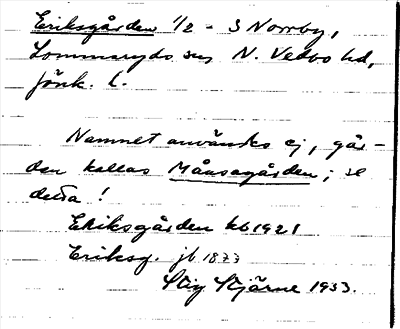 Eriksgården 1/2 - 3 Norrby,
Lommaryds sn, N. Vedbo hd,
Jönk. l.
Namnet användes ej, går-
den kallas Måsagården; se
detta!
Eriksgården kb 1921
Eriksg. jb 1877
Stig Stjärne 1933.